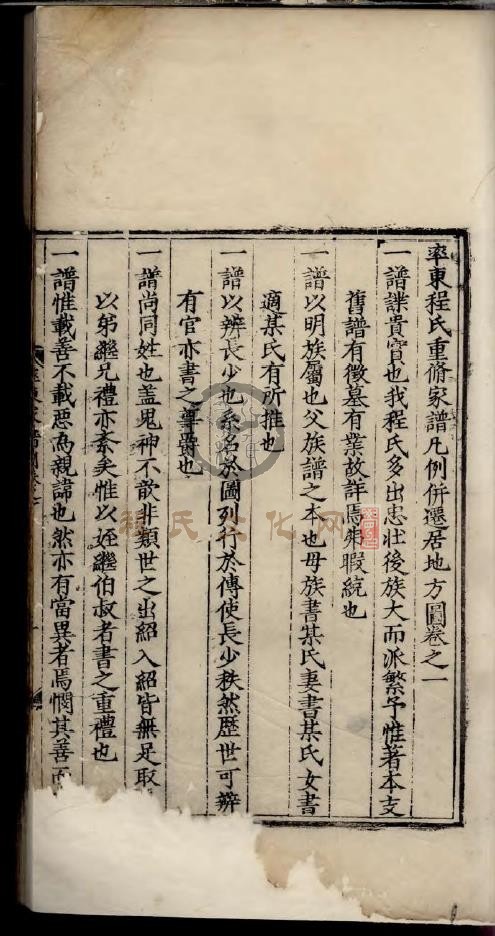 率東程氏重脩家譜凡例併遷居地方圖卷之一
一譜諜貴實也我程氏多出忠壯後族大而派繁予惟著本支
舊譜有徵墓有業故詳焉弗暇統也
一譜以明族屬也父族譜之本也母族書某氏妻書某氏女書
適某氏有所推也
一譜以辨長少也系名於圖列行於傳使長少秩然歷世可辨
有官亦書之尊爵也
一譜尚同姓也盖鬼神不歆非類世之出紹入紹皆無足取
以弟繼兄禮亦紊矣惟以姪繼伯叔者書之重禮也
一譜惟載善不載惡為親諱也然亦有當異者焉憫其善而
程氏文化网